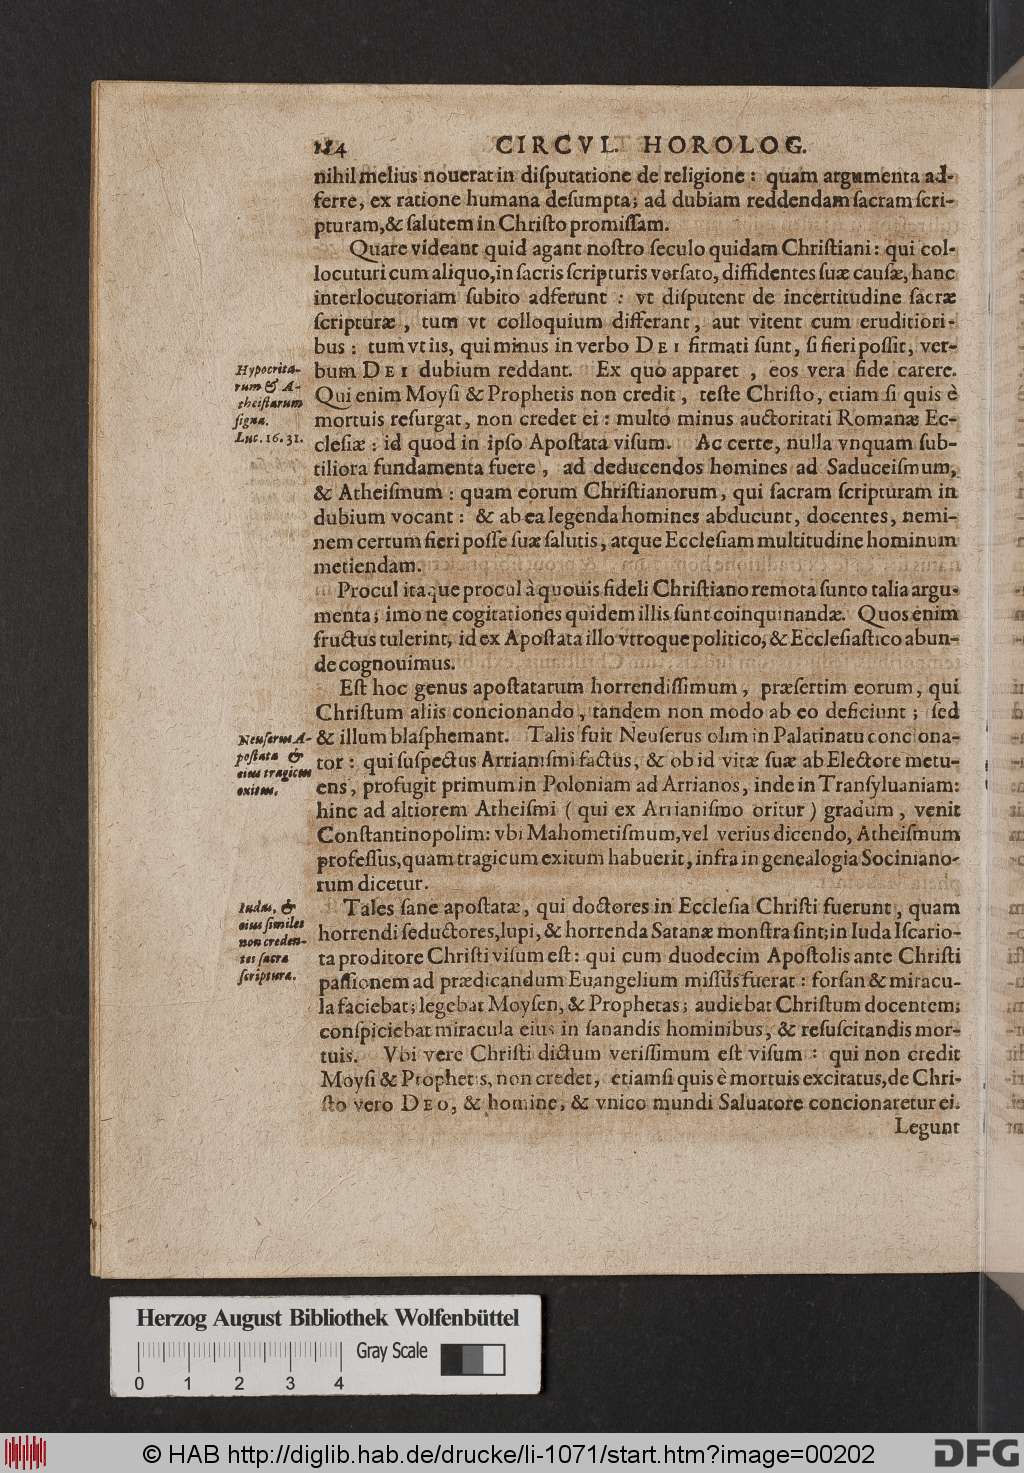 184 CIRCVL. HOROLOG.
nihil melius nouerat in diſputatione de religione: quam argumenta ad-
ferre, ex ratione humana deſumpta; ad dubiam reddendam ſacram ſcri-
pturam, & ſalutem in Chriſto promiſſam.
Quare videant quid agant noſtro ſeculo quidam Chriſtiani: qui col-
locuturi cum aliquo, in ſacris ſcripturis verſato, diffidentes ſuæ cauſæ, hanc
interlocutoriam ſubito adferunt : vt diſputent de incertitudine ſacræ
ſcripturæ, tum vt colloquium differant, aut vitent cum eruditiori-
bus: tum vt iis, qui minus in verbo DEI firmati ſunt, ſi fieri poſſit, ver-
bum DEI dubium reddant. Ex quo apparet, eos vera fide carere.
Qui enim Moyſi & Prophetis non credit, teſte Chriſto, etiam ſi quis è
mortuis reſurgat, non credet ei: multò minus auctoritati Romanæ Ec-
cleſiæ: id quod in ipſo Apoſtata viſum. Ac certe, nulla vnquam ſub-
tiliora fundamenta fuere, ad deducendos homines ad Saduceiſmum,
& Atheiſmum: quam eorum Chriſtianorum, qui ſacram ſcripturam in
dubium vocant: & ab ea legenda homines abducunt, docentes, nemi-
nem certum fieri poſſe ſuæ ſalutis, atque Eccleſiam multitudine hominum
metiendam.
Hypocrita-
rum & A-
theiſtarum
ſigna.
Luc. 16. 31.
Procul itaque procul à quouis fideli Chriſtiano remota ſunto talia argu-
menta; imo ne cogitationes quidem illis ſunt coinquinandæ. Quos enim
fructus tulerint, id ex Apoſtata illo vtroque politico, & Eccleſiaſtico abun-
de cognouimus.
Eſt hoc genus apoſtatarum horrendiſſimum, præſertim eorum, qui
Chriſtum aliis concionando, tandem non modo ab eo deficiunt; ſed
& illum blaſphemant. Talis fuit Neuſerus olim in Palatinatu conciona-
tor: qui ſuſpectus Arrianiſmi factus, & ob id vitæ ſuæ ab Electore metu-
ens, profugit primum in Poloniam ad Arrianos, inde in Tranſyluaniam:
hinc ad altiorem Atheiſmi (qui ex Arrianiſmo oritur) gradum, venit
Conſtantinopolim: vbi Mahometiſmum, vel verius dicendo, Atheiſmum
profeſſus, quam tragicum exitum habuerit, infra in genealogia Sociniano-
rum dicetur.
Neuſerus A-
poſtata &
eius tragicus
exitus.
Tales ſane apoſtatæ, qui doctores in Eccleſia Chriſti fuerunt, quam
horrendi ſeductores, lupi, & horrenda Satanæ monſtra ſint; in Iuda Iſcario-
ta proditore Chriſti viſum eſt: qui cum duodecim Apoſtolis ante Chriſti
paſſionem ad prædicandum Euangelium miſſus fuerat: forſan & miracu-
la faciebat; legebat Moyſen, & Prophetas; audiebat Chriſtum docentem;
conſpiciebat miracula eius in ſanandis hominibus, & reſuſcitandis mor-
tuis. Vbi vere Chriſti dictum veriſſimum eſt viſum : qui non credit
Moyſi & Prophetis, non credet, etiamſi quis è mortuis excitatus, de Chri-
ſto vero DEO, & homine, & vnico mundi Saluatore concionaretur ei.
Iudas, &
eius ſimiles
non creden-
tes ſacra
ſcriptura.
Legunt
Herzog August Bibliothek Wolfenbüttel
Gray Scale
0 1 2 3 4
© HAB http://diglib.hab.de/drucke/li-1071/start.htm?image=00202
DFG